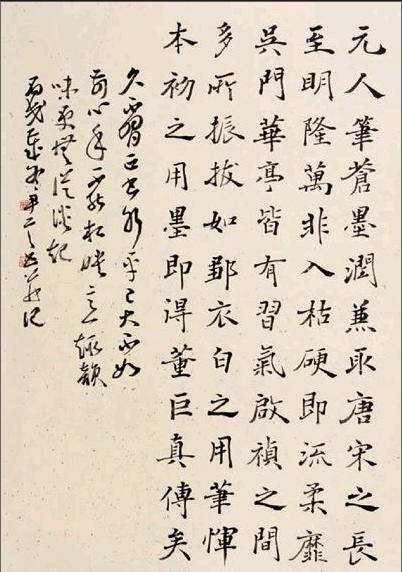 元人筆蒼墨潤兼取唐宋之長
至明隆萬非入枯硬即流柔靡
吳門華亭皆有習氣啟禎之間
多所振拔如鄒衣白之用筆惲
本初之用墨即得董巨真傳矣
久不習正書已大不如
前心手
味更